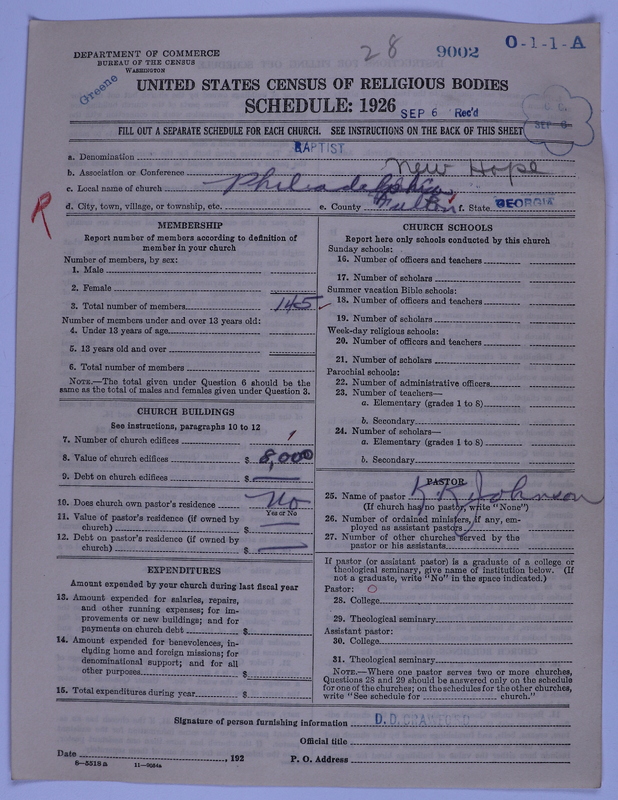 28 9002 O-1-1-A
DEPARTMENT OF COMMERCE
BUREAU OF THE CENSUS
WASHINGTON
Greene
UNITED STATES CENSUS OF RELIGIOUS BODIES
SCHEDULE: 1926
SEP 6 Rec'd
FILL OUT A SEPARATE SCHEDULE FOR EACH CHURCH. SEE INSTRUCTIONS ON THE BACK OF THIS SHEET
a. Denomination BAPTIST
b. Association or Conference New Hope
c. Local name of church Philadelphia
d. City, town, village, or township, etc. e. County Fulton f. State GEORGIA
R
MEMBERSHIP
Report number of members according to definition of
member in your church
Number of members, by sex:
1. Male
2. Female
3. Total number of members 145
Number of members under and over 13 years old:
4. Under 13 years of age
5. 13 years old and over
6. Total number of members
NOTE.—The total given under Question 6 should be the
same as the total of males and females given under Question 3.
CHURCH BUILDINGS
See instructions, paragraphs 10 to 12
7. Number of church edifices 1
8. Value of church edifices $ 8,000
9. Debt on church edifices $
10. Does church own pastor's residence No
Yes or No
11. Value of pastor's residence (if owned by
church) $
12. Debt on pastor's residence (if owned by
church) $
EXPENDITURES
Amount expended by your church during last fiscal year
13. Amount expended for salaries, repairs,
and other running expenses; for im-
provements or new buildings; and for
payments on church debt $
14. Amount expended for benevolences, in-
cluding home and foreign missions; for
denominational support; and for all
other purposes $
15. Total expenditures during year $
CHURCH SCHOOLS
Report here only schools conducted by this church
Sunday schools:
16. Number of officers and teachers
17. Number of scholars
Summer vacation Bible schools:
18. Number of officers and teachers
19. Number of scholars
Week-day religious schools:
20. Number of officers and teachers
21. Number of scholars
Parochial schools:
22. Number of administrative officers
23. Number of teachers—
a. Elementary (grades 1 to 8)
b. Secondary
24. Number of scholars—
a. Elementary (grades 1 to 8)
b. Secondary
PASTOR
25. Name of pastor K K Johnson
(If church has no pastor, write "None")
26. Number of ordained ministers, if any, em-
ployed as assistant pastors
27. Number of other churches served by the
pastor or his assistants
If pastor (or assistant pastor) is a graduate of a college or
theological seminary, give name of institution below. (If
not a graduate, write "No" in the space indicated.)
Pastor:
28. College
29. Theological seminary
Assistant pastor:
30. College
31. Theological seminary
NOTE.—Where one pastor serves two or more churches,
Questions 28 and 29 should be answered only on the schedule
for one of the churches; on the schedules for the other churches,
write "See schedule for church."
Signature of person furnishing information D. D. CRAWFORD
Official title
Date , 192 P. O. Address
8—5518a 11—9064a